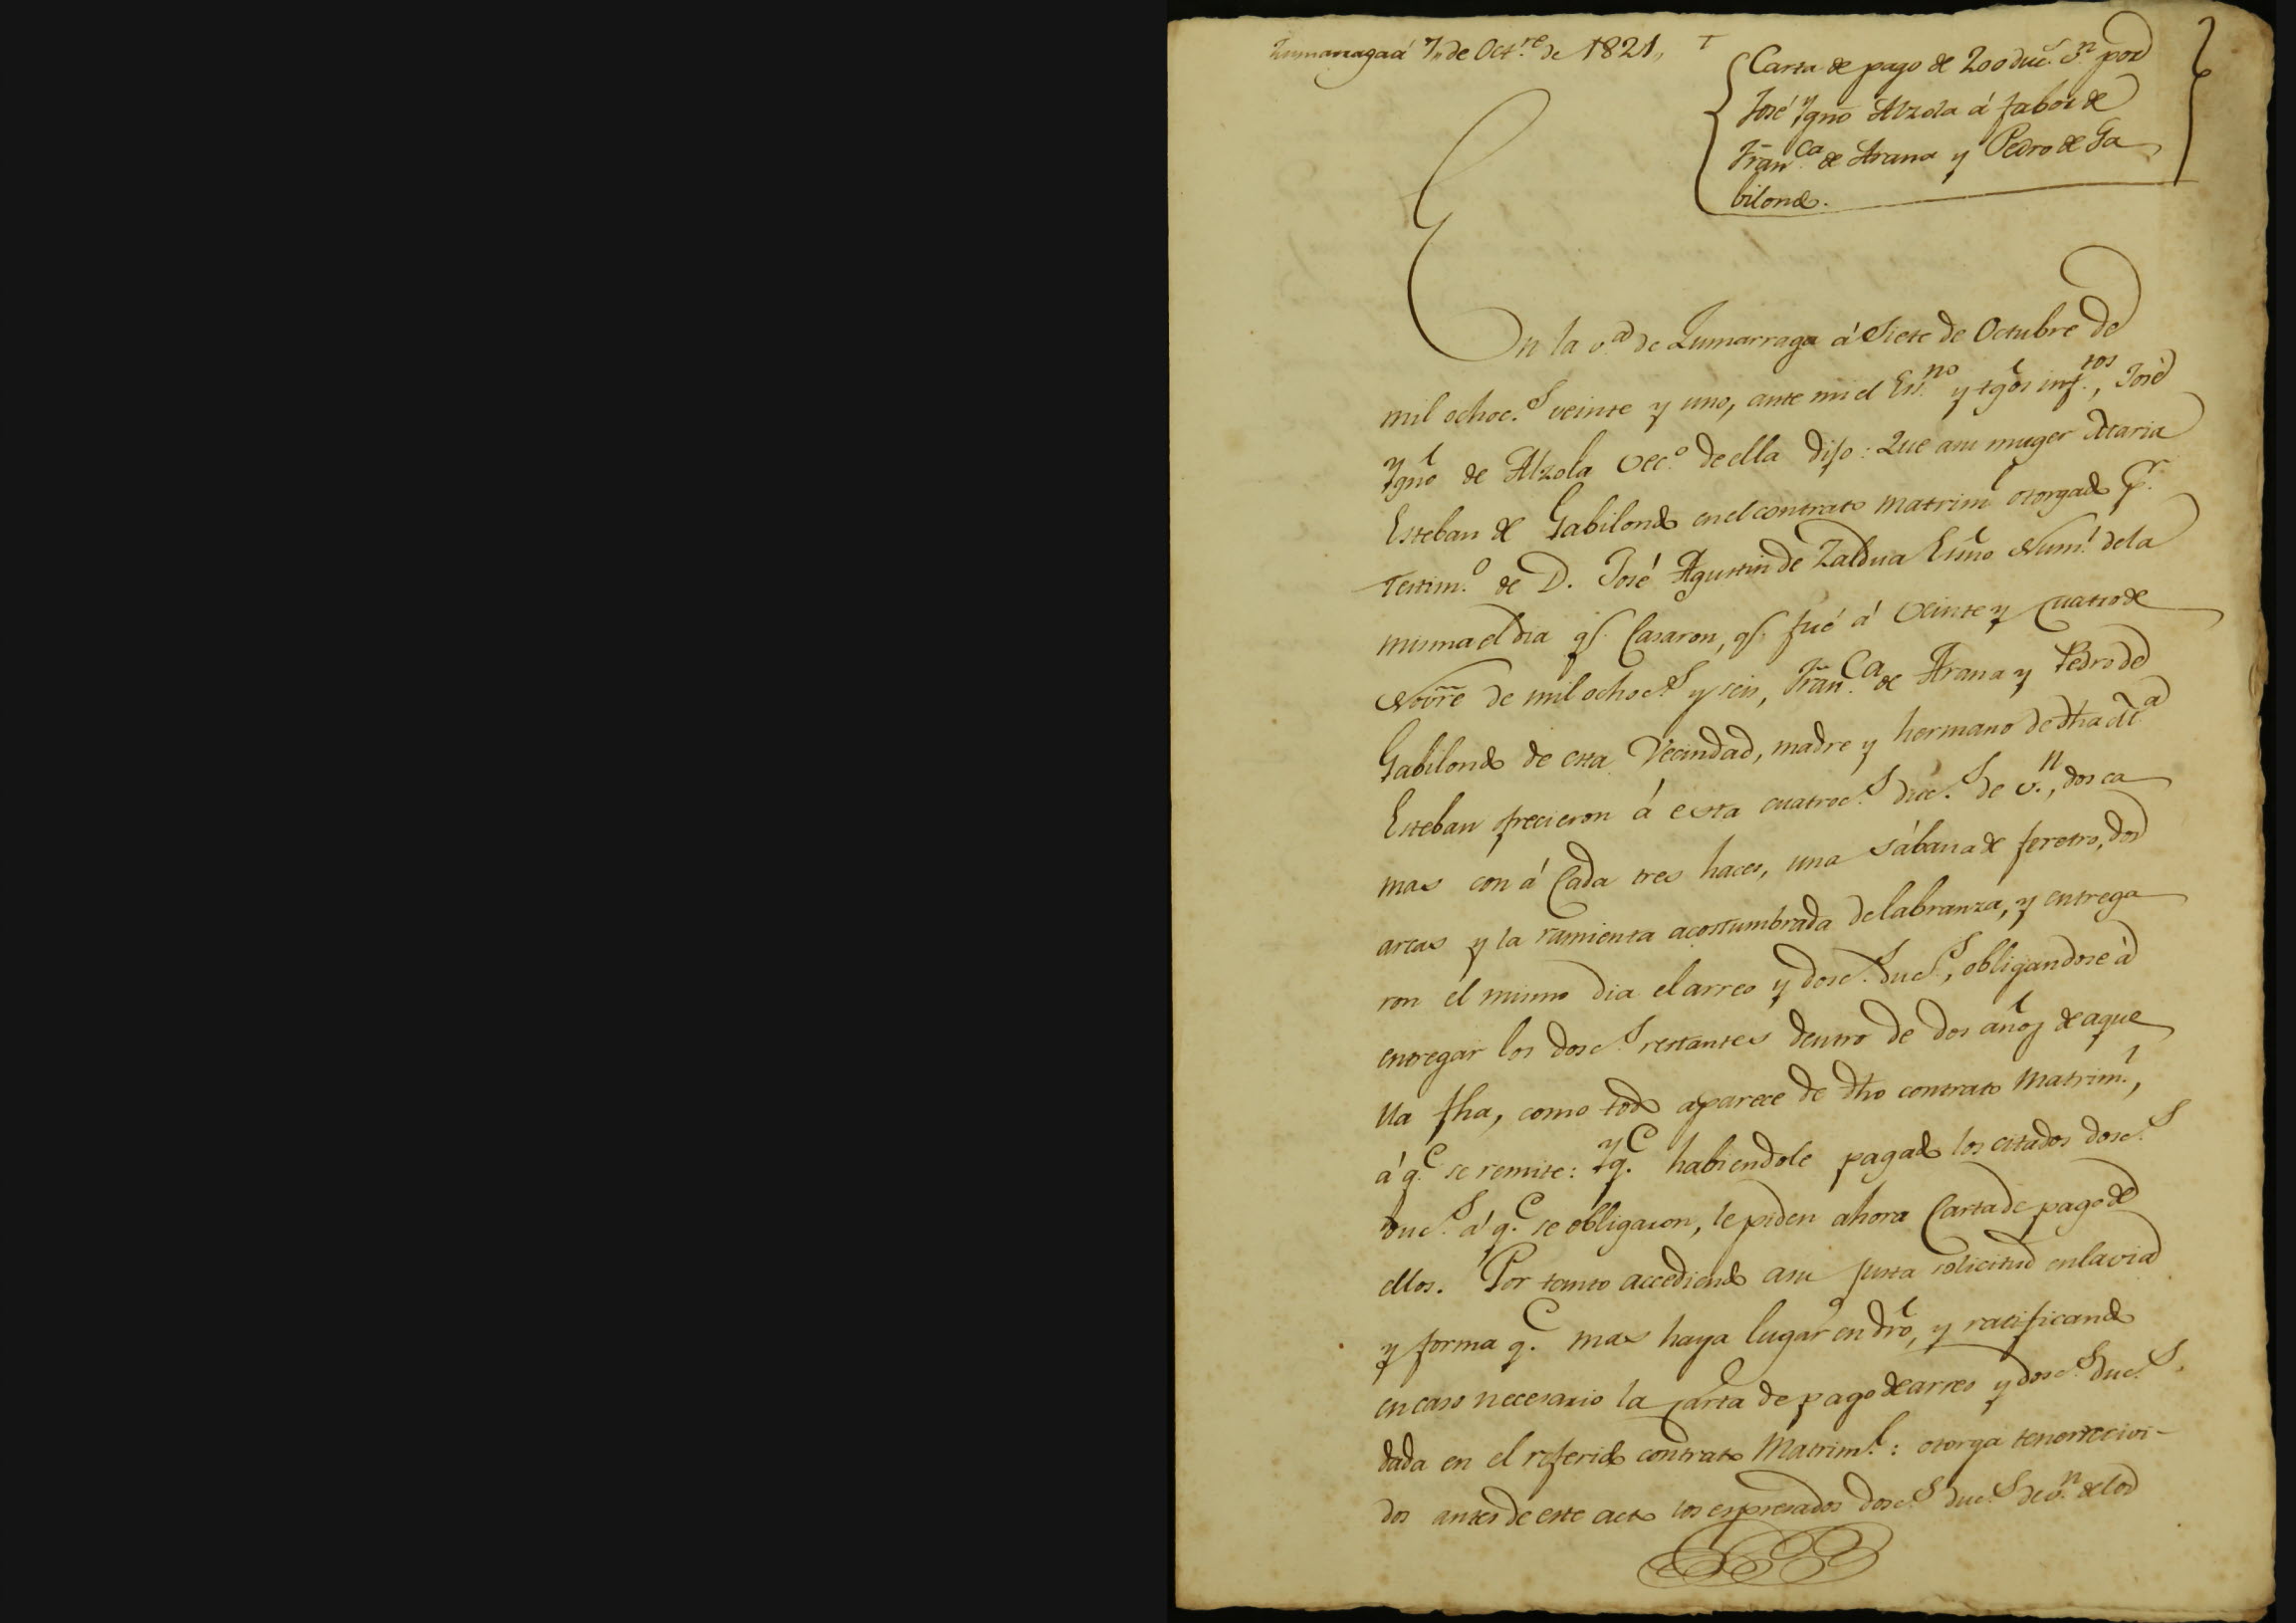 Zumarragaá 7,, de Oct.re de 1821,,
Carta de pago de 200 duc.s v.n por
José Ygnō Alzola á fabor de
Frān.ca de Arana y Pedro de Ga
bilondo.
En la v.a de Zumarraga á Siete de Octubre de
mil ochoc.s veinte y uno, ante mi el Es.no y tgōs inf.tos, José
Ygnō de Alzola vec.o de ella dijo: Que asu muger Maria
Esteban de Gabilondo en el contrato matrim.l otorgado p.r
Testim.o de D. José Agustin de Zaldua Esn̄o Num.l dela
misma el dia q.e Casaron, q.e fué á Veinte y Cuatro de
Nov̄re de mil ochoc.s y seis, Frān.ca de Arana y Pedro de
Gabilondo de esta Vecindad, madre y hermano de dha M.a
Esteban ofrecieron á esta cuatroc.s duc.s de v.n, dos ca
mas con á Cada tres haces, una sábana de feretro, dos
arcas y la ramienta acostumbrada de labranza, y entrega
ron el mismo dia el arreo y dosc.s duc.s, obligandose á
entregar los dosc.s restantes dentro de dos años de aque
lla fha, como todo aparece de dho contrato Matrim.l,
á q.e se remite: Y q.e habiendole pagado los citados dosc.s
duc.s á q.e se obligaron, le piden ahora Carta de pago de
ellos. Por tanto accediendo asu justa solicitud en la via
y forma q.e mas haya lugar en dr̄o, y ratificando
en caso necesario la carta de pago de arreo y dosc.s duc.s
dada en el referido contrato Matrim.l: otorga tener recivi-
dos antes de este acto los espresados dosc.s duc.s de v.n de los